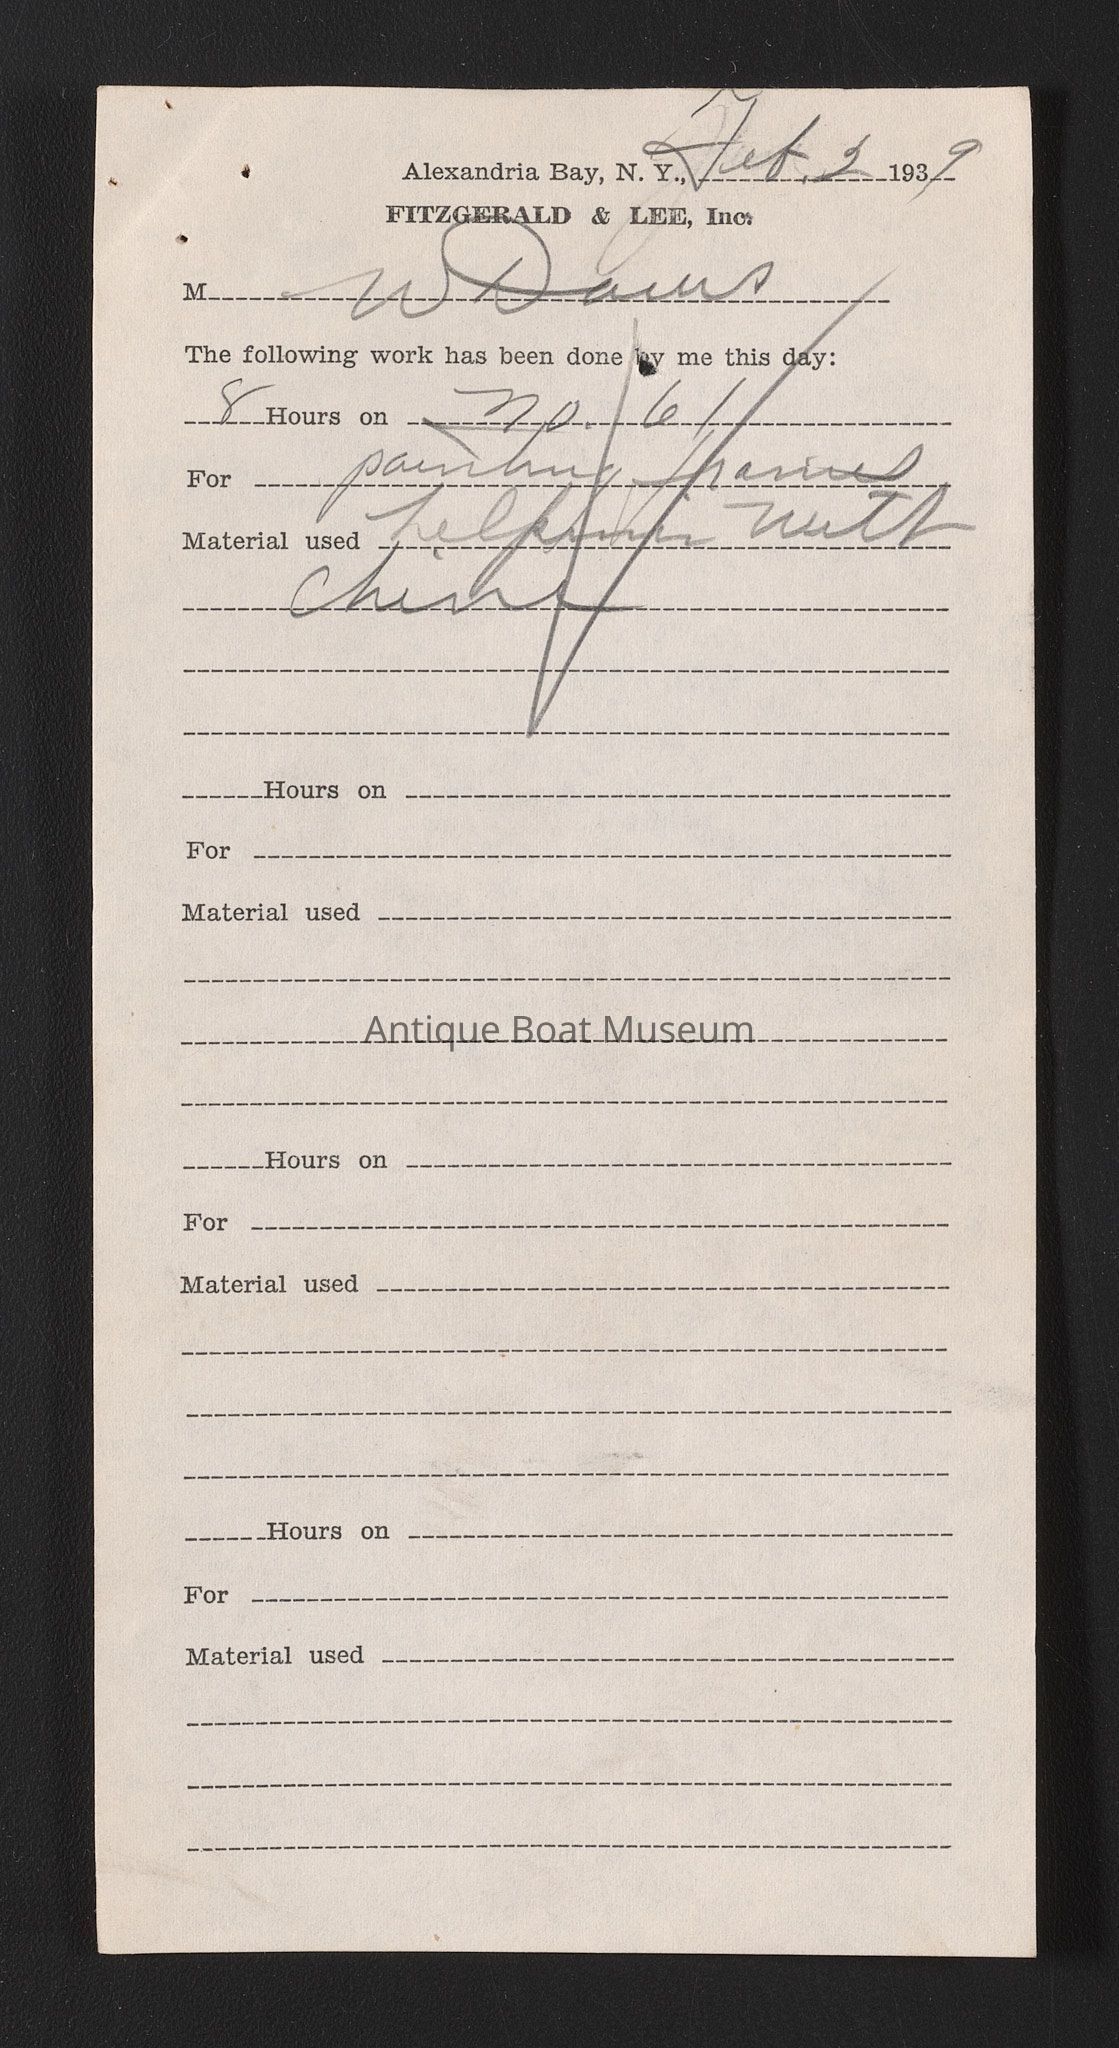 Alexandria Bay, N. Y., Feb. 2 1939
FITZGERALD & LEE, Inc.
M W Daws
The following work has been done by me this day:
8 Hours on No. 61
For painting frames
Material used helping with
chine
Hours on
For
Material used
Antique Boat Museum
Hours on
For
Material used
Hours on
For
Material used